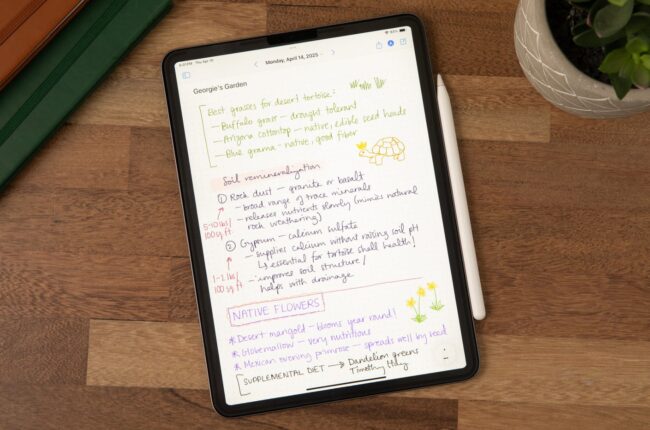 Monday, April 14, 2025
Georgie's Garden
Best grasses for desert tortoise:
— Buffalo grass — drought tolerant
— Arizona cottontop — native, edible seed heads
— Blue grama — native, good fiber
Soil remineralization
① Rock dust — granite or basalt
— broad range of trace minerals
— releases nutrients slowly (mimics natural
rock weathering)
5-10 lbs/
100 sq ft.
② Gypsum — calcium sulfate
— supplies calcium without raising soil pH
↳ essential for tortoise shell health!
— improves soil structure/
helps with drainage
1-2 lbs/
100 sq ft.
NATIVE FLOWERS
* Desert marigold — blooms year round!
* Globemallow — very nutritious
* Mexican evening primrose — spreads well by seed
SUPPLEMENTAL DIET → Dandelion greens
Timothy Hay